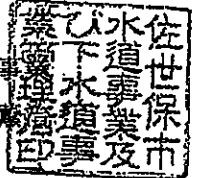 佐世保市
水道事業及
び下水道事
業管理者印